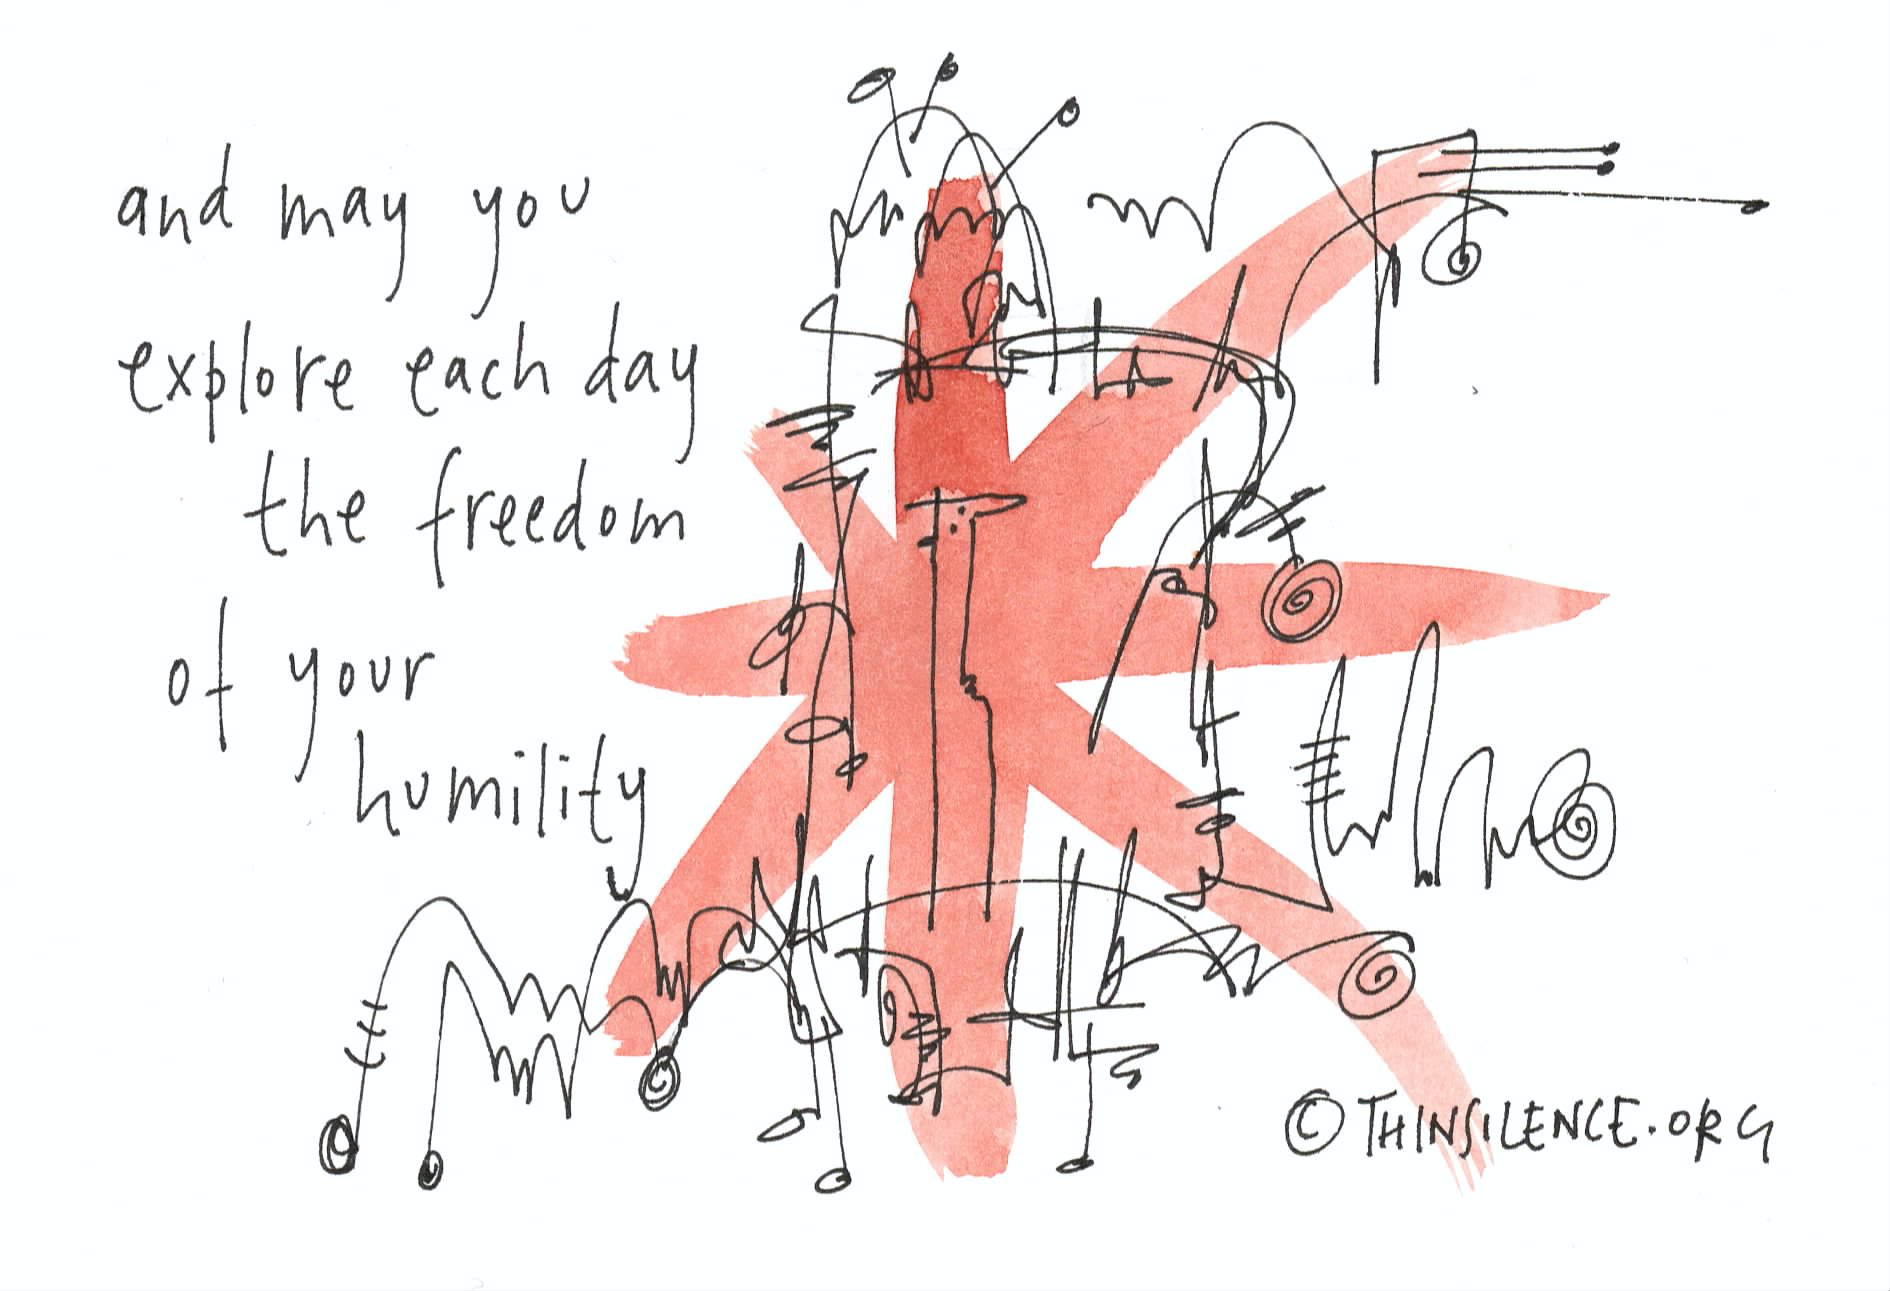 and may you
explore each day
the freedom
of your
humility
© THINSILENCE.ORG